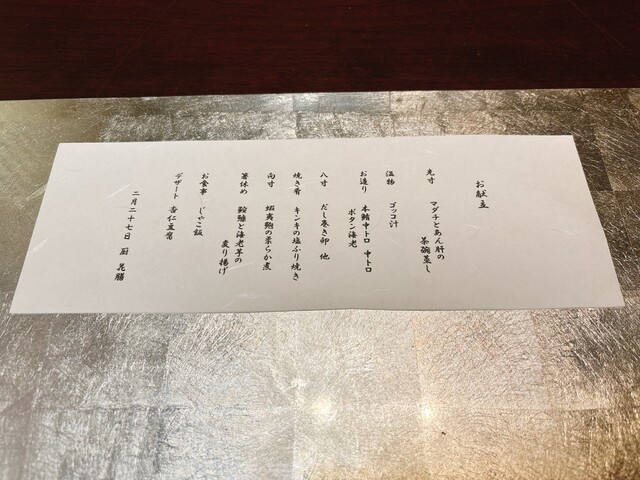 お献立
先寸 マダチとあん肝の
茶碗蒸し
温物 ゴッコ汁
お造り 本鮪中トロ 中トロ
ボタン海老
八寸 だし巻き卵 他
焼き肴 キンキの塩ふり焼き
向寸 蝦夷鮑の柔らか煮
箸休め 鮟鱇と海老芋の
炙り揚げ
お食事 じゃこ飯
デザート 杏仁豆腐
二月二十七日 厨 花膳